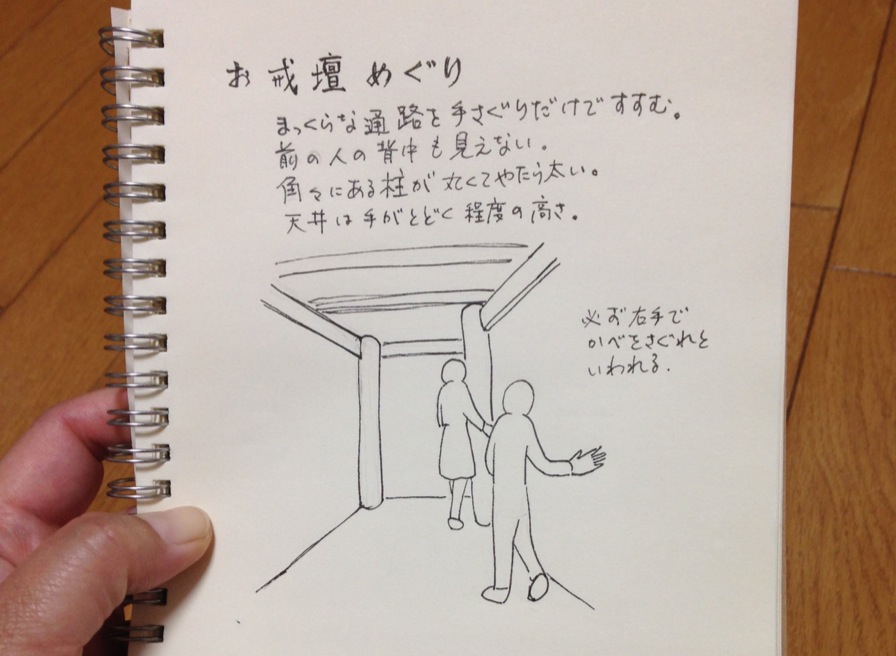 お戒壇めぐり
まっくらな通路を手さぐりだけですすむ。
前の人の背中も見えない。
角々にある柱が丸くてやたら太い。
天井は手がとどく程度の高さ。
必ず右手で
かべをさぐれと
いわれる.